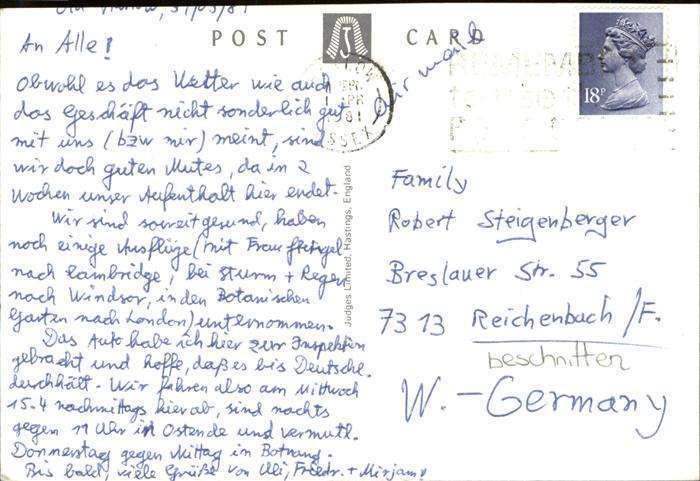 Old Harlow, 31/03/81
POST CARD
An Alle!
Air mail
Obwohl es das Wetter wie auch
das Geschäft nicht sonderlich gut
mit uns (bzw mir) meint, sind
wir doch guten Mutes, da in 2
Wochen unser Aufenthalt hier endet.
Wir sind soweit gesund, haben
noch einige Ausflüge (mit Frau
nach Cambridge, bei Sturm + Regen
nach Windsor, in den Botanischen
Garten nach London) unternommen.
Das Auto habe ich hier zur Inspektion
gebracht und hoffe, daß es bis Deutschl.
durchhält. Wir fahren also am Mittwoch
15.4 nachmittags hier ab, sind nachts
gegen 11 Uhr in Ostende und vermutl.
Donnerstag gegen Mittag in Botnang.
Bis bald, viele Grüße von Uli, Friedr. + Mirjam!
Judges Limited, Hastings, England
18P
APR
81
ESSEX
REMEMBER
Family
Robert Steigenberger
Breslauer Str. 55
7313 Reichenbach/F.
beschnitten
W.-Germany